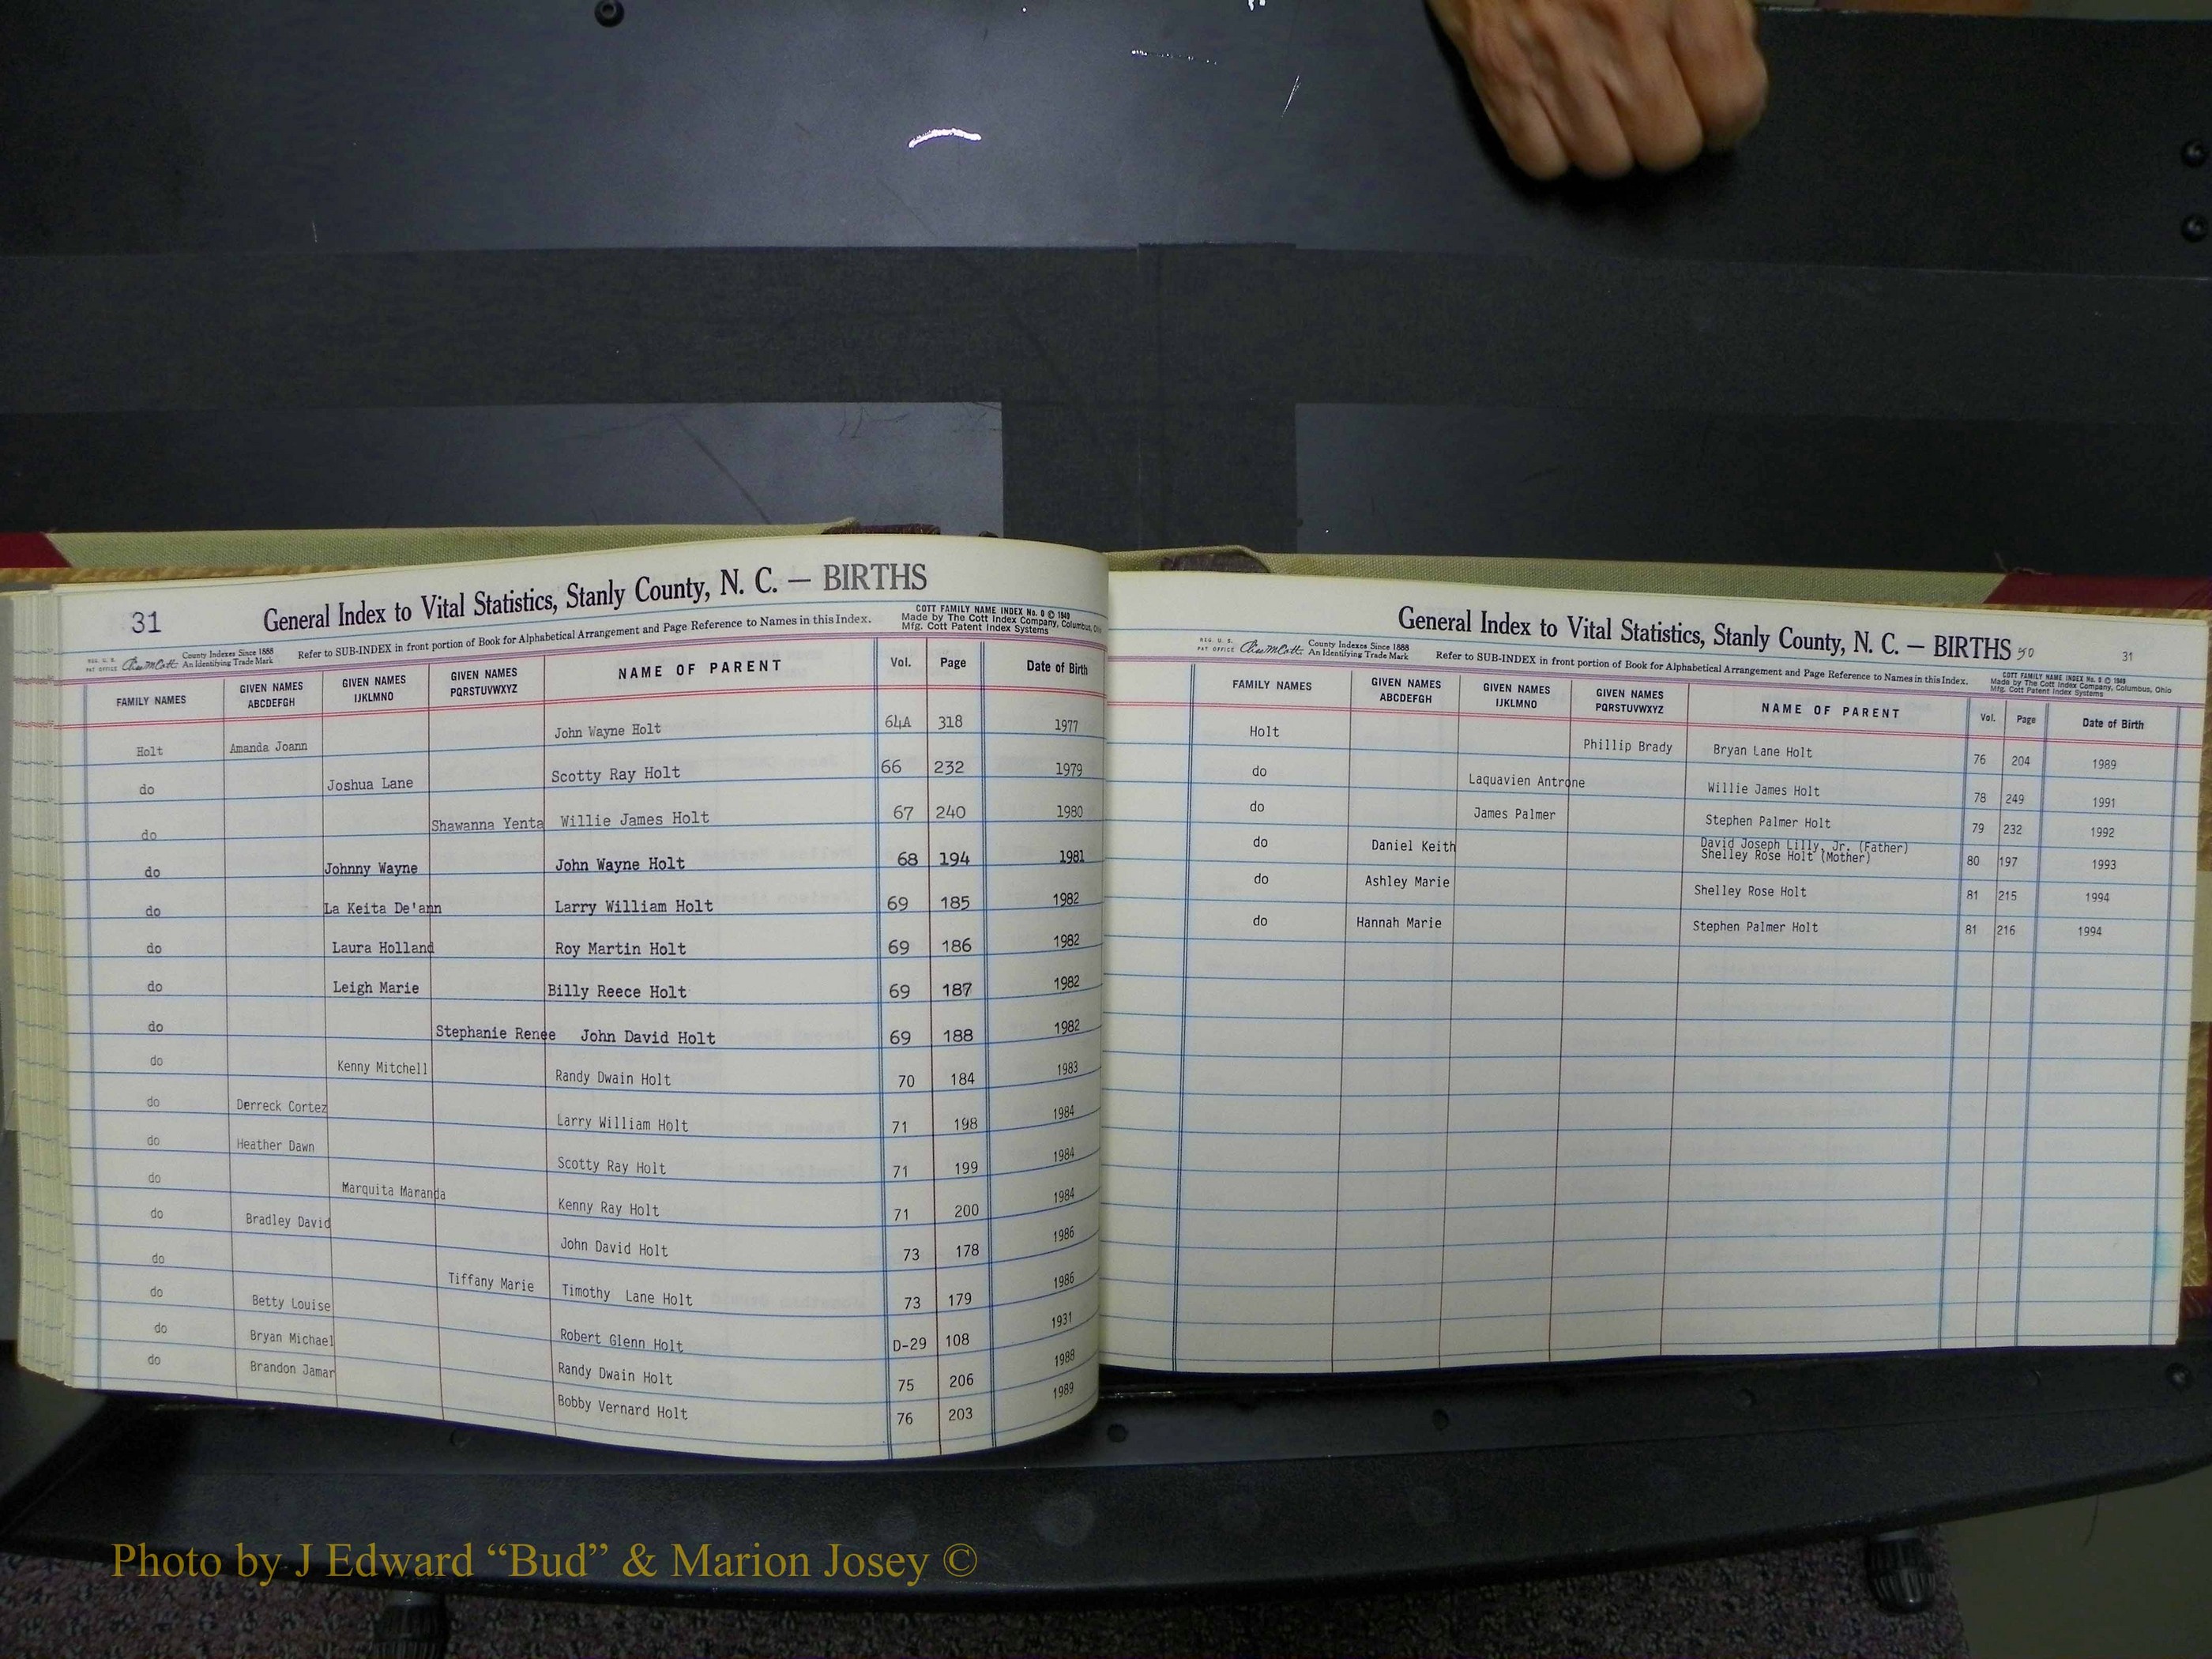 31
General Index to Vital Statistics, Stanly County, N. C. — BIRTHS
COTT FAMILY NAME INDEX No. 0 © 1949
Made by The Cott Index Company, Columbus, Ohio
Mfg. Cott Patent Index Systems
REG. U. S. PAT OFFICE County Indexes Since 1888 An Identifying Trade Mark Refer to SUB-INDEX in front portion of Book for Alphabetical Arrangement and Page Reference to Names in this Index.
FAMILY NAMES GIVEN NAMES ABCDEFGH GIVEN NAMES IJKLMNO GIVEN NAMES PQRSTUVWXYZ NAME OF PARENT Vol. Page Date of Birth
Holt Amanda Joann John Wayne Holt 64A 318 1977
do Joshua Lane Scotty Ray Holt 66 232 1979
do Shawanna Yenta Willie James Holt 67 240 1980
do Johnny Wayne John Wayne Holt 68 194 1981
do La Keita De'ann Larry William Holt 69 185 1982
do Laura Holland Roy Martin Holt 69 186 1982
do Leigh Marie Billy Reece Holt 69 187 1982
do Stephanie Renee John David Holt 69 188 1982
do Kenny Mitchell Randy Dwain Holt 70 184 1983
do Derreck Cortez Larry William Holt 71 198 1984
do Heather Dawn Scotty Ray Holt 71 199 1984
do Marquita Maranda Kenny Ray Holt 71 200 1984
do Bradley David John David Holt 73 178 1986
do Tiffany Marie Timothy Lane Holt 73 179 1986
do Betty Louise Robert Glenn Holt D-29 108 1931
do Bryan Michael Randy Dwain Holt 75 206 1988
do Brandon Jamar Bobby Vernard Holt 76 203 1989
General Index to Vital Statistics, Stanly County, N. C. — BIRTHS 50
31
REG. U. S. PAT OFFICE County Indexes Since 1888 An Identifying Trade Mark Refer to SUB-INDEX in front portion of Book for Alphabetical Arrangement and Page Reference to Names in this Index.
COTT FAMILY NAME INDEX No. 0 © 1949
Made by The Cott Index Company, Columbus, Ohio
Mfg. Cott Patent Index Systems
FAMILY NAMES GIVEN NAMES ABCDEFGH GIVEN NAMES IJKLMNO GIVEN NAMES PQRSTUVWXYZ NAME OF PARENT Vol. Page Date of Birth
Holt Phillip Brady Bryan Lane Holt 76 204 1989
do Laquavien Antrone Willie James Holt 78 249 1991
do James Palmer Stephen Palmer Holt 79 232 1992
do Daniel Keith David Joseph Lilly, Jr. (Father)
Shelley Rose Holt (Mother) 80 197 1993
do Ashley Marie Shelley Rose Holt 81 215 1994
do Hannah Marie Stephen Palmer Holt 81 216 1994
Photo by J Edward “Bud” & Marion Josey ©